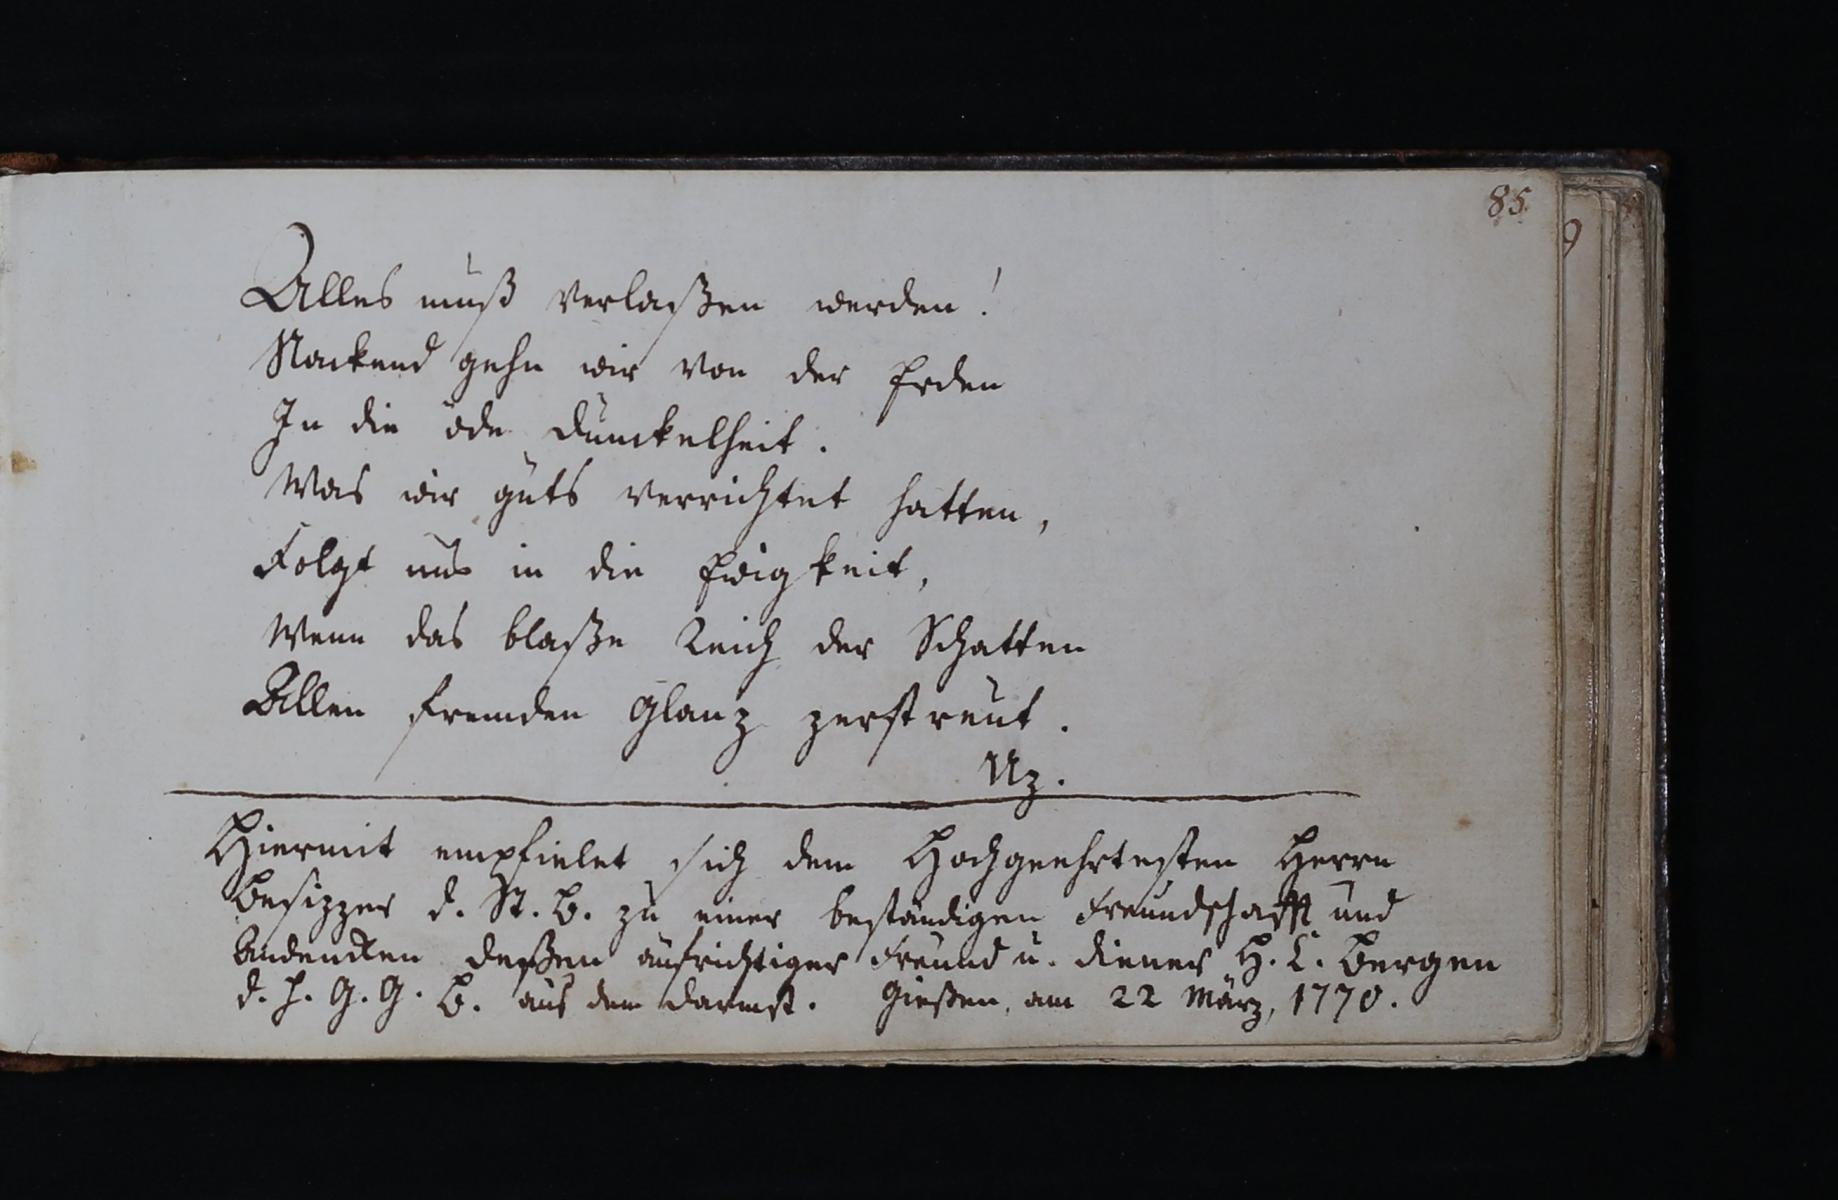 85.
Alles muß verlaßen werden!
Nackend gehn wir von der Erden
In die öde Dunckelheit.
Was wir guts verrichtet hatten,
Folgt uns in die Ewigkeit,
Wenn das blaße Reich der Schatten
Allen fremden Glanz zerstreut.
Uz.
Hiermit empfielet sich dem Hochgeehrtesten Herrn
Besizzer d. St. B. zu einer beständigen Freundschafft und
Andencken deßen aufrichtiger Freund u. Diener H. C. Bergen
d. H. G. G. B. aus dem Darmst. Gießen, am 22 März, 1770.